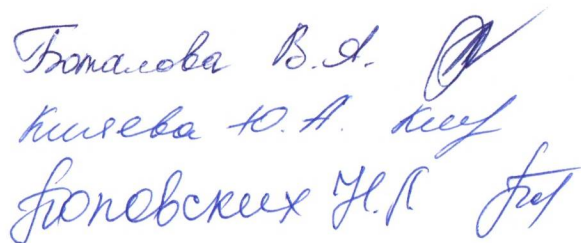 Боталова В.А.
Киляева Ю.А.
Поповских Н.Л.